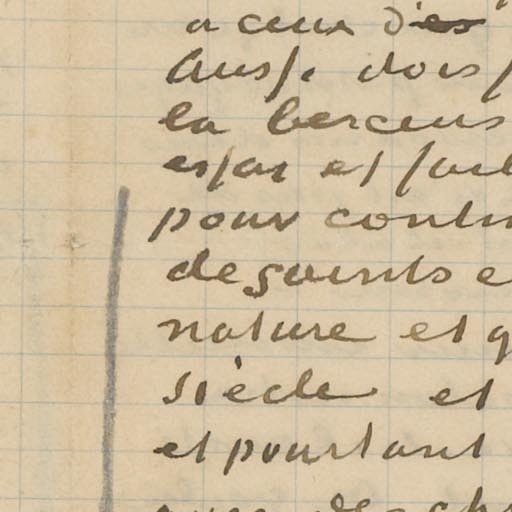 a ceux d'es
Aussi dois
la berceus
essai et fait
pour contin
de saints e
nature et q
siècle et
et pourtant